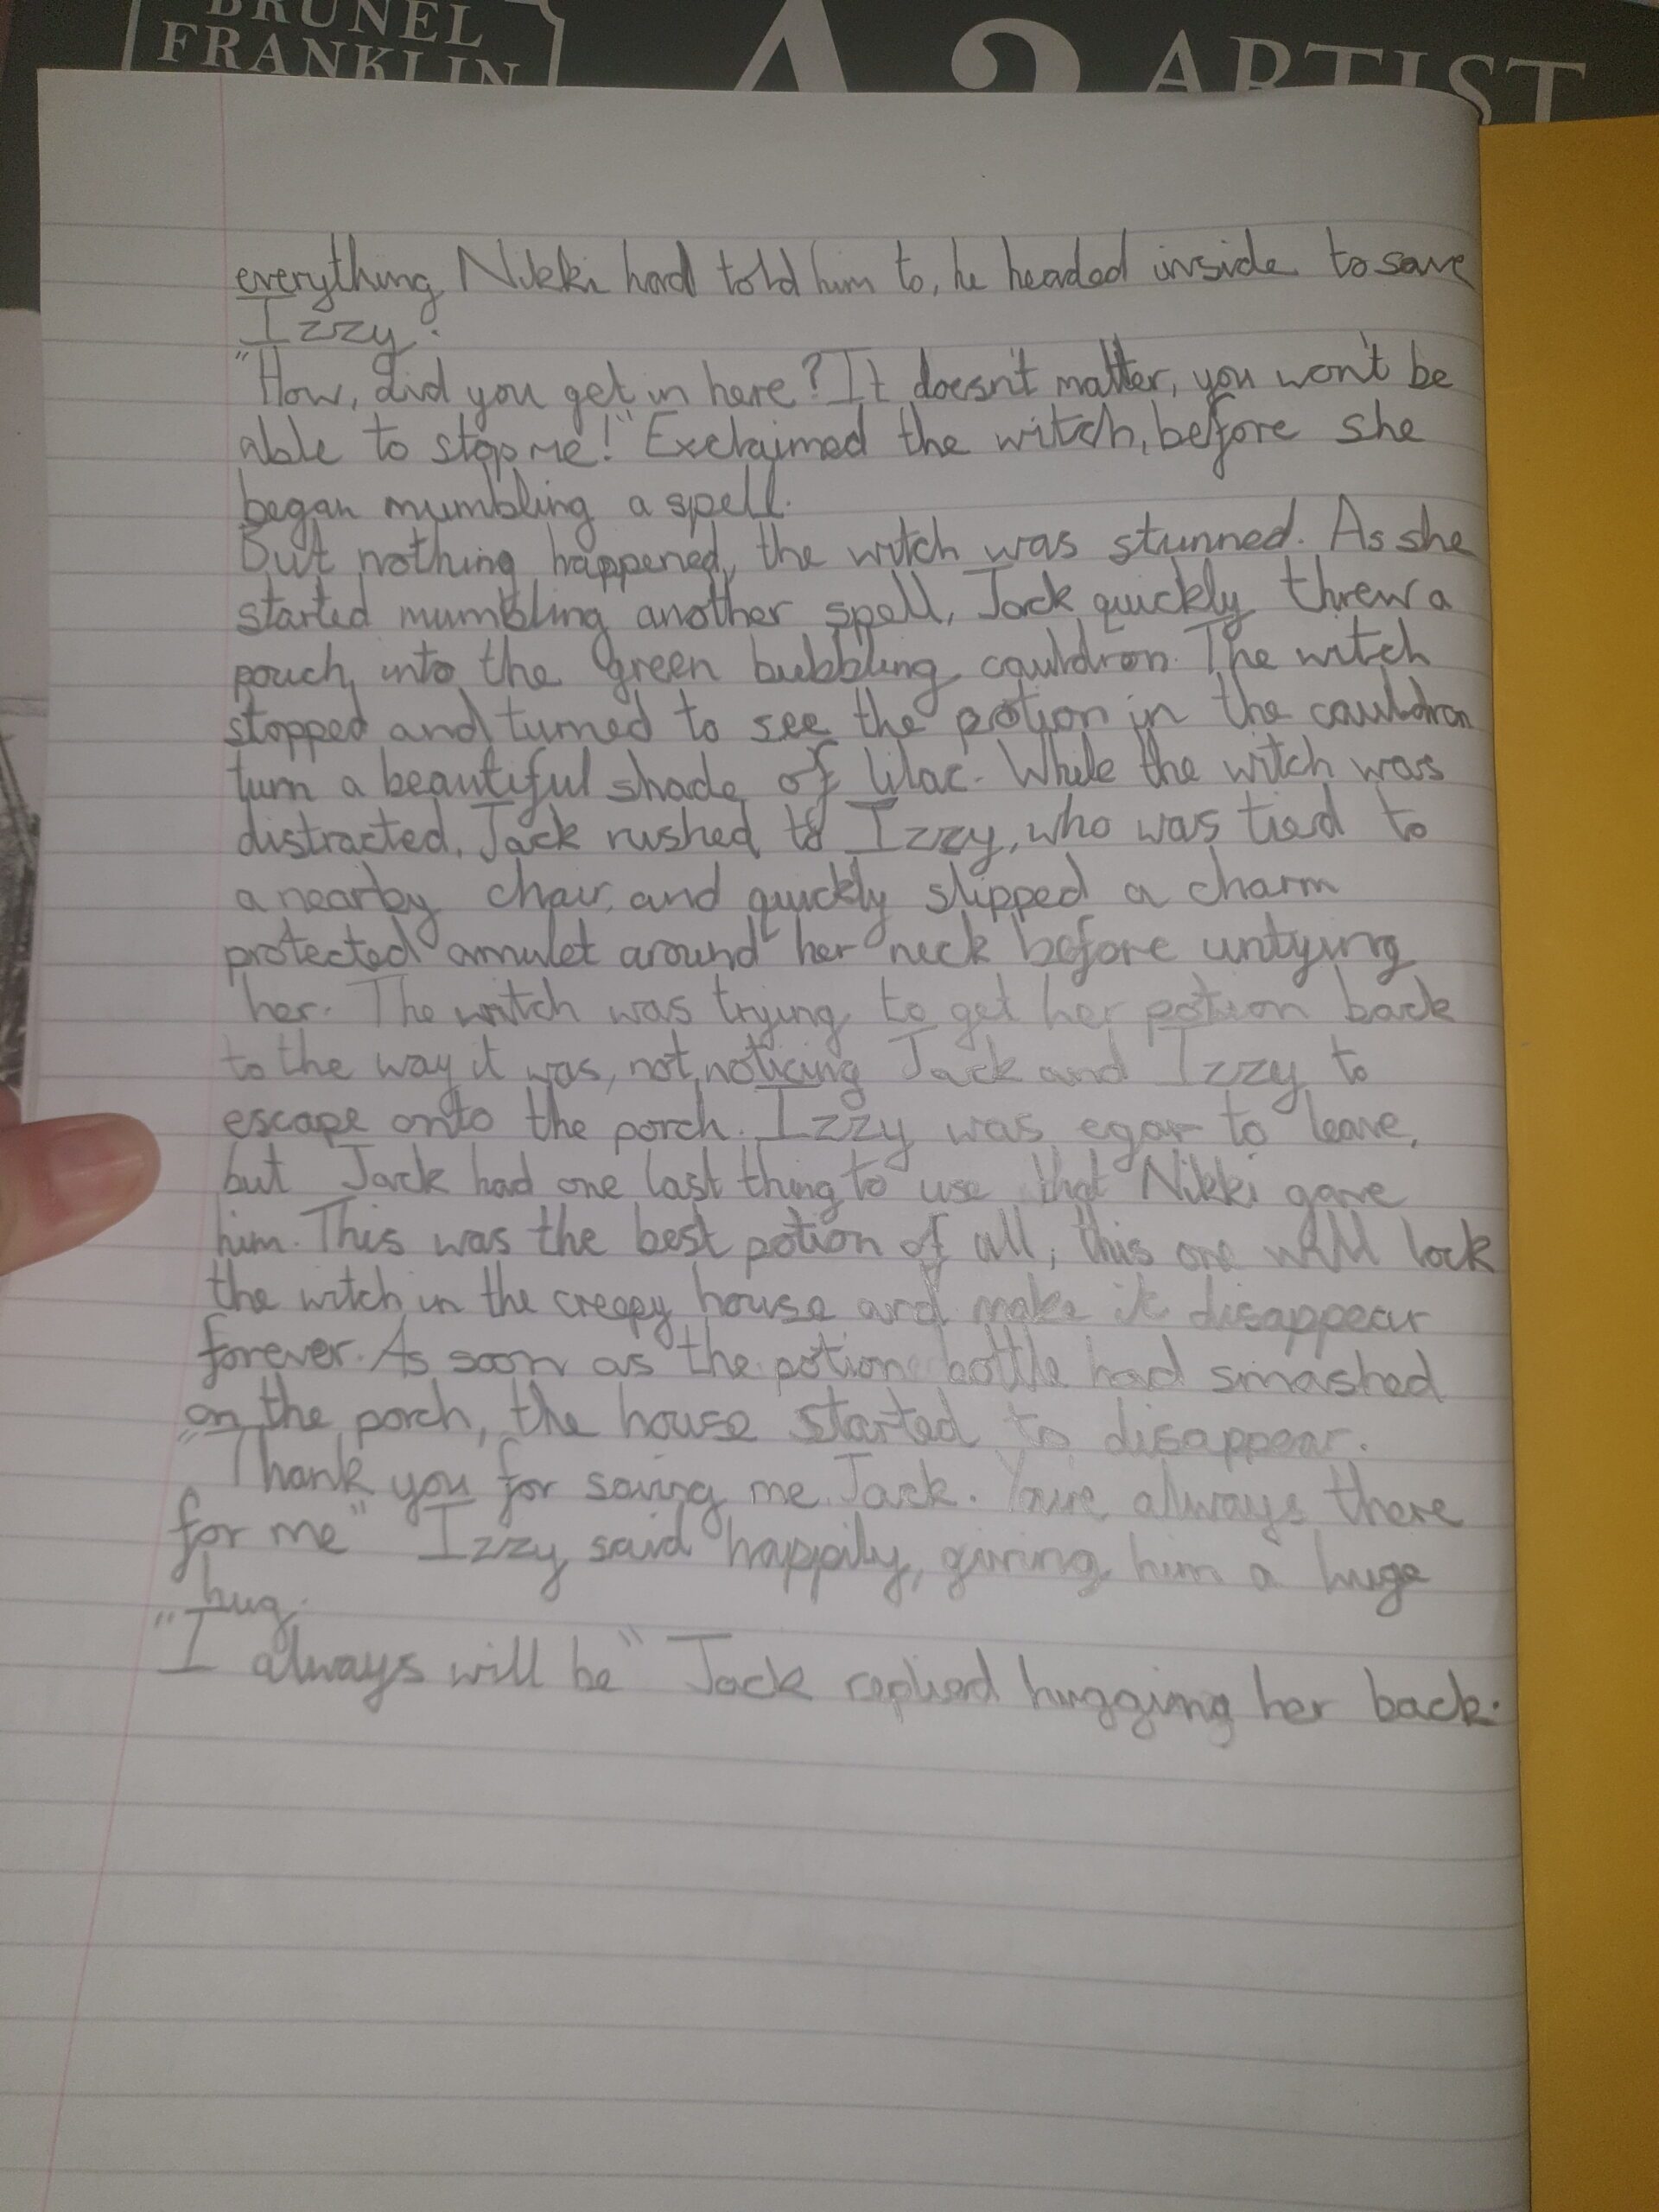 BRUNEL
FRANKLIN
A3 ARTIST
everything Nikki had told him to, he headed inside to save
Izzy.
"How, did you get in here? It doesn't matter, you won't be
able to stop me!" Exclaimed the witch, before she
began mumbling a spell.
But nothing happened, the witch was stunned. As she
started mumbling another spell, Jack quickly threw a
pouch into the green bubbling cauldron. The witch
stopped and turned to see the potion in the cauldron
turn a beautiful shade of lilac. While the witch was
distracted, Jack rushed to Izzy, who was tied to
a nearby chair, and quickly slipped a charm
protected amulet around her neck before untying
her. The witch was trying to get her potion back
to the way it was, not noticing Jack and Izzy to
escape onto the porch. Izzy was egar to leave,
but Jack had one last thing to use that Nikki gave
him. This was the best potion of all, this one will lock
the witch in the creepy house and make it disappear
forever. As soon as the potion bottle had smashed
on the porch, the house started to disappear.
"Thank you for saving me Jack. Your always there
for me" Izzy said happily, giving him a huge
hug.
"I always will be" Jack replied hugging her back.